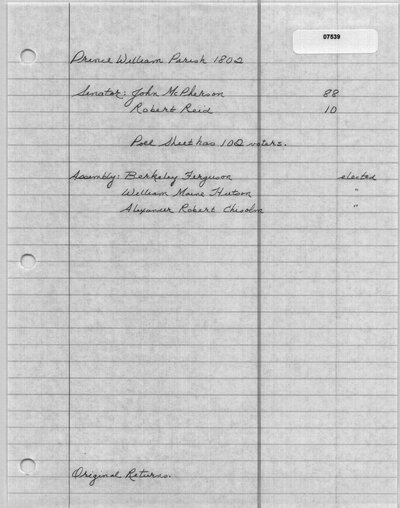 07539
Prince William Parish 1802
Senator: John McPherson 88
Robert Reid 10
Poll Sheet has 102 voters.
Assembly: Berkeley Ferguson elected
William Maine Hutson "
Alexander Robert Chisolm "
Original Returns.